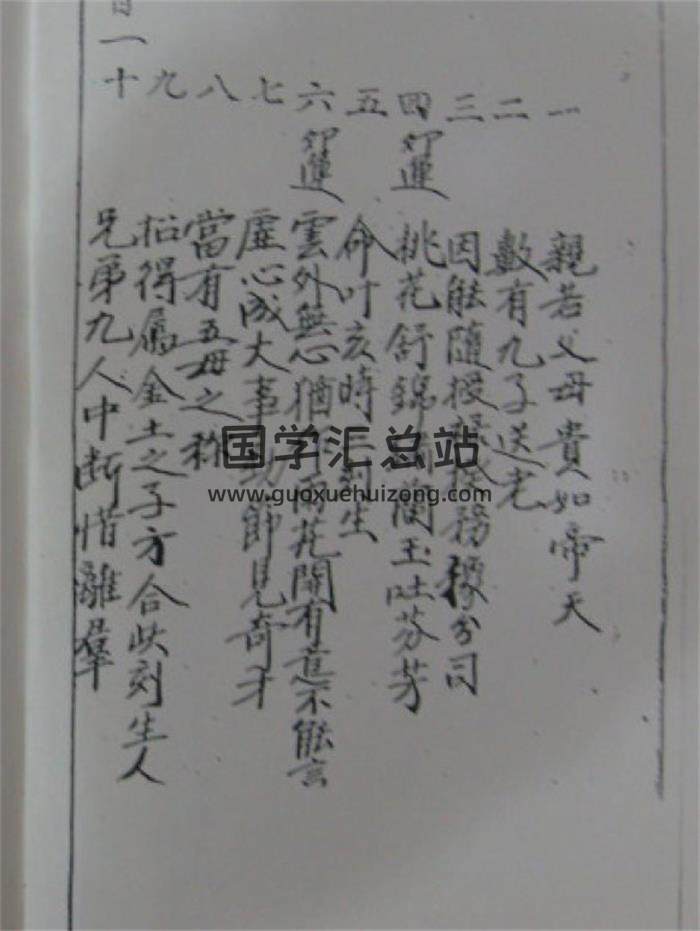 一 親若父母貴如帝天
二 數有九子送老
三 因能隨授 務 分司
四 卯運 桃花舒錦 蘭玉吐芬芳
五 命叶亥時 刻生
六 卯運 雲外無心猶 雨花開有意不能言
七 虛心成大事 節見奇才
八 當有五母之称
九 招得屬金土之子方合此刻生人
十 兄弟九人中断惜離群
国学汇总站
www.guoxuehuizong.com